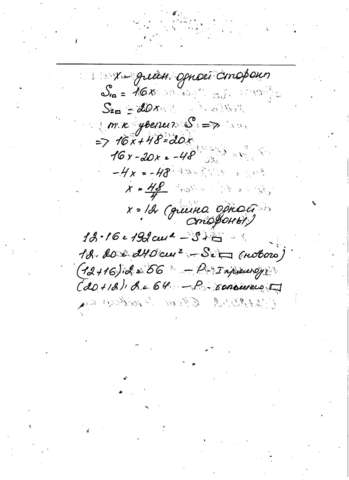 x - длин. одной сторон
S₁▭ = 16x
S₂▭ = 20x
т.к увелич. S =>
=> 16x+48=20x
16x-20x=-48
-4x=-48
x = 48/4
x = 12 (длина одной
стороны)
12·16=192см² - S₁▭
12·20=240см² - S₂▭ (нового)
(12+16)·2=56 - P - I
(20+12)·2=64 - P - большего ▭